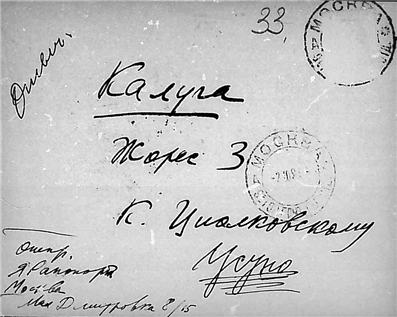 33
МОСКВА
Отвеч.
Калуга
Жорес 3
МОСКВА
К. Циолковскому
отпр.
Я. Рапопорт
Москва
Мал Дмитровка 8/15